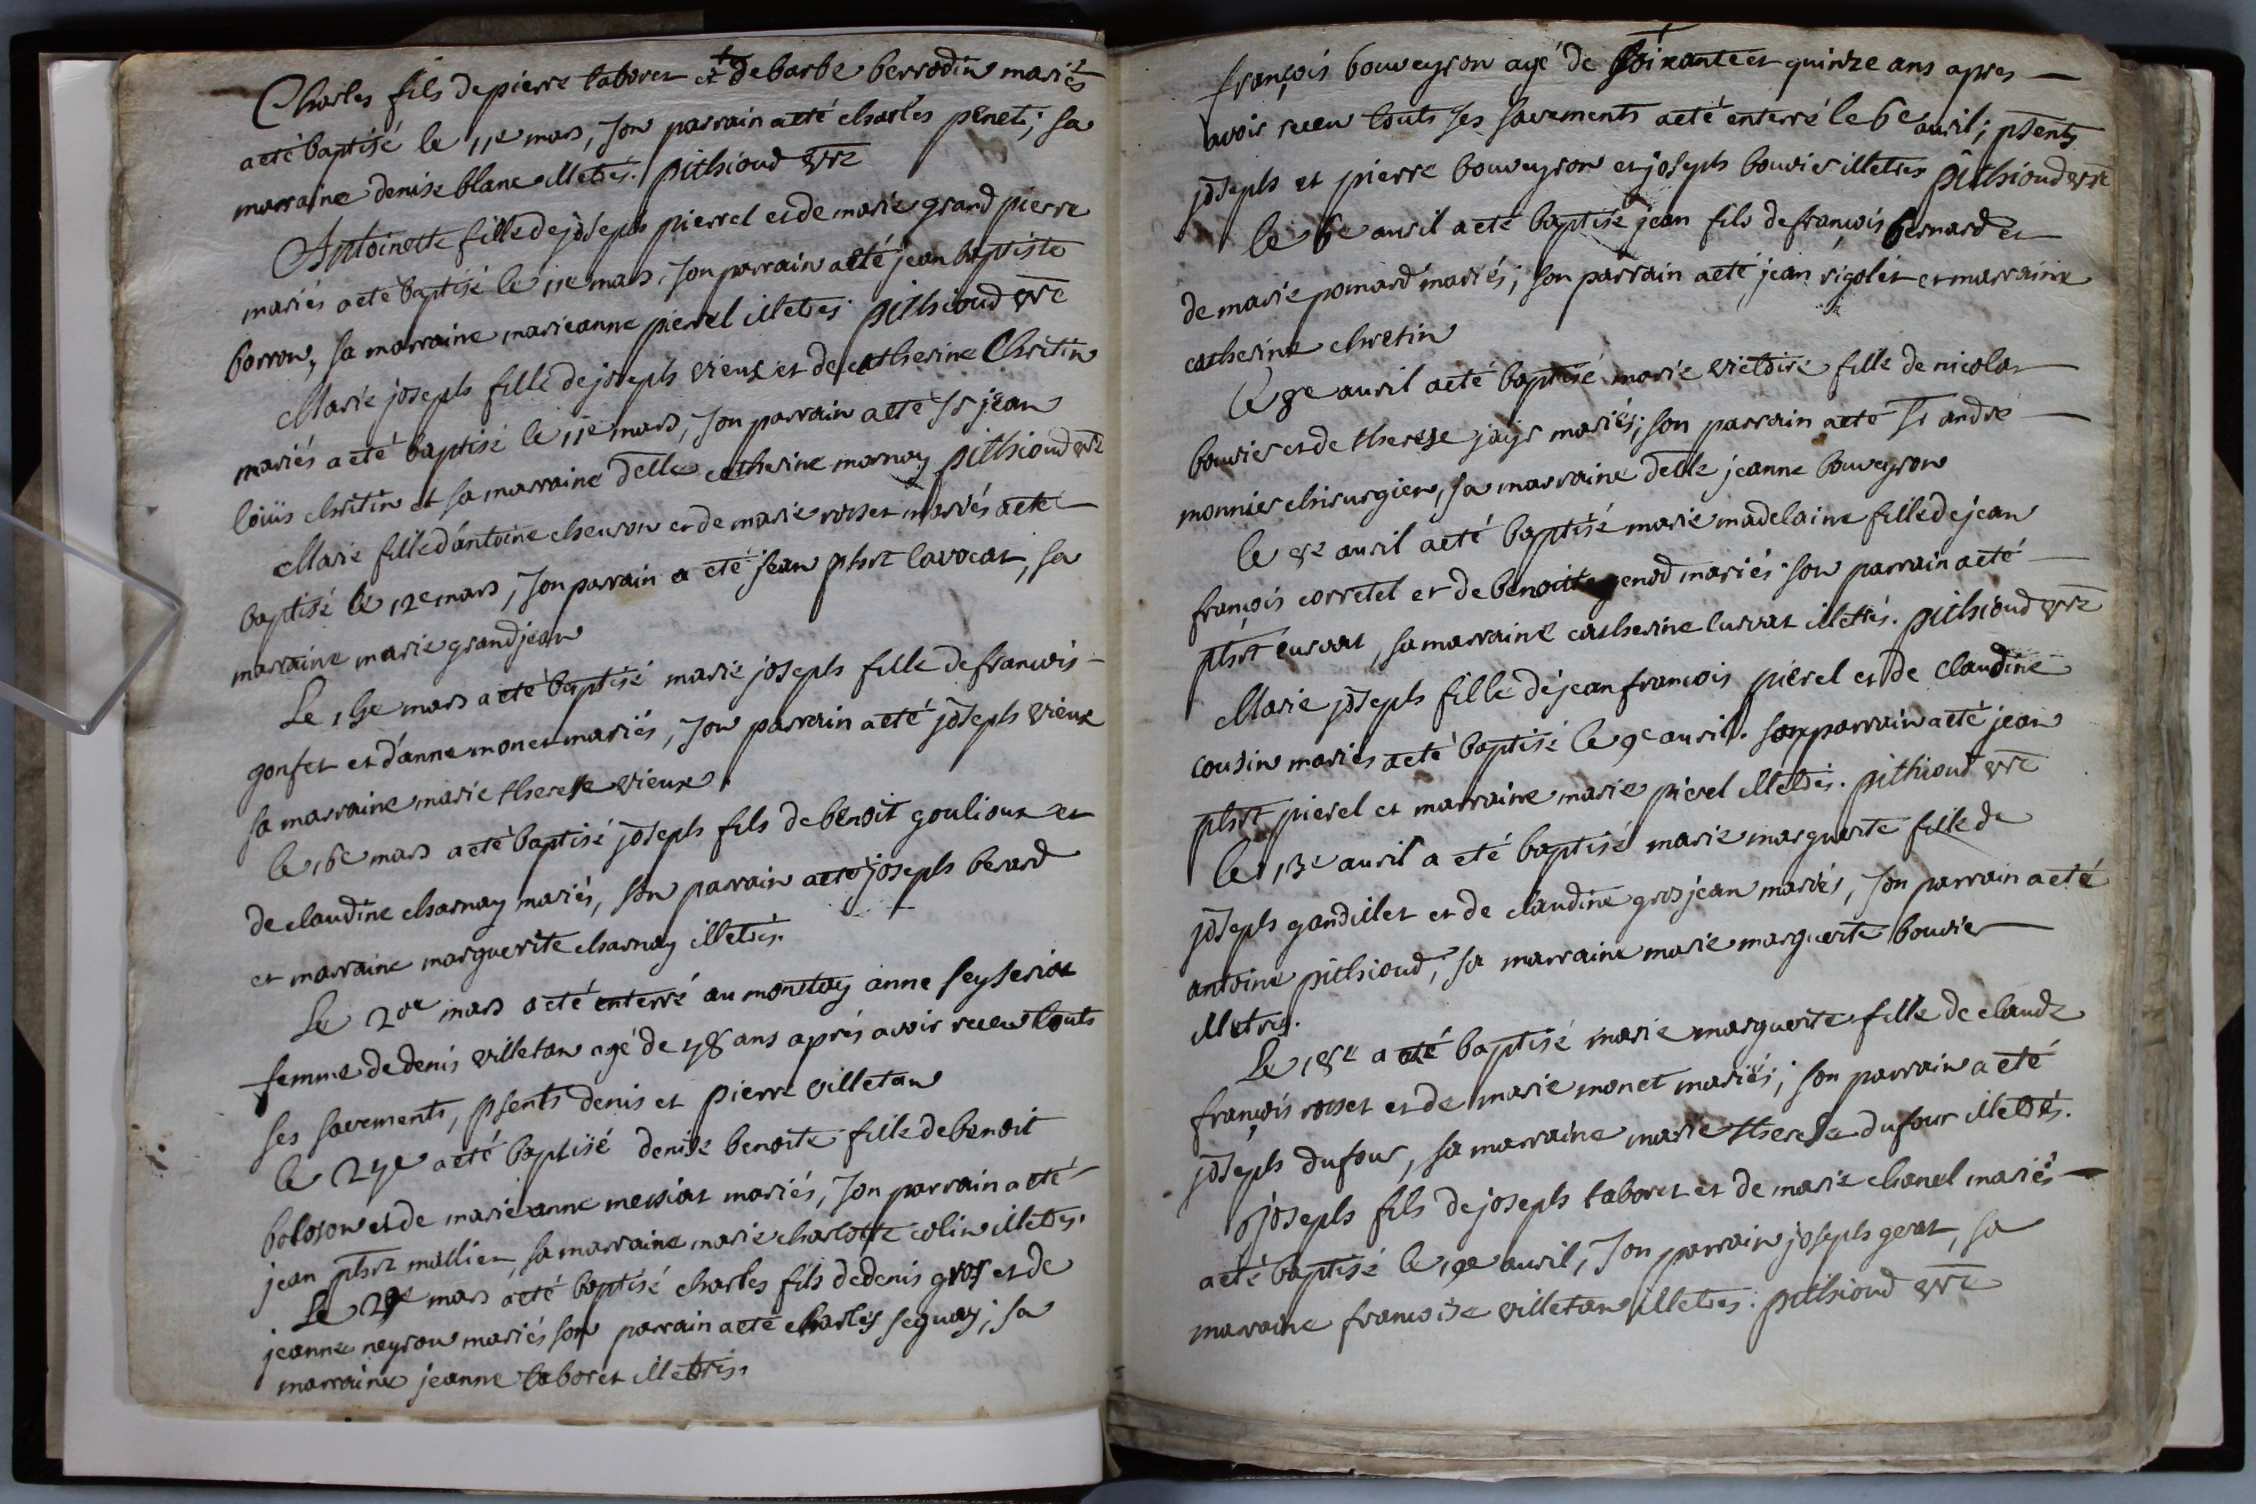 Charles fils de pierre taboret et de barbe berrodin mariés
a eté baptisé le 11e mars, son parrain a eté charles penet; sa
marraine denise blanc illetrés. pithioud vre
Antoinette fille de joseph pierrel et de marie grand pierre
mariés a eté baptisé le 11e mars, son parrain a eté jean baptiste
borron, sa marraine marieanne pierrel illetrés pithioud vre
Marie joseph fille de joseph vieux et de catherine Chritin
mariés a eté baptisé le 11e mars, son parrain a eté sr jean
loüis chritin et sa marraine delle catherine mornay pithioud vre
Marie fille d'antoine chevron et de marie rosset mariés a eté
baptisé le 12e mars, son parrain a eté jean phrt lavocat, sa
marraine marie grandjean
Le 15e mars a eté baptisé marie joseph fille de francois
gonfet et d'anne monet mariés, son parrain a eté joseph vieux
sa marraine marie therese vieux.
le 16e mars a eté baptisé joseph fils de benoit goulioux et
de claudine charnay mariés, son parrain a eté joseph berard
et marraine marguerite charnay illetrés.
Le 20e mars a eté enterré au montay anne seyseriat
femme de denis villetan agé de 78 ans aprés avoir receu touts
ses sacrements, psents denis et pierre villetan
le 27e a eté baptisé denise benoite fille de benoit
boloson et de marie anne messiat mariés, son parrain a eté
jean phrt millien, sa marraine marie charlotte colin illetrés.
Le 29e mars a eté baptisé charles fils de denis gros et de
jeanne neyron mariés son parrain a eté charles seguay; sa
marraine jeanne taboret illetrés.
françois bouveyron agé de soixante et quinze ans apres
avoir receu touts ses sacrements a eté enterré le 6e avril; psents
joseph et pierre bouveyron et joseph bouvier illetres pithioud vre
le 6e avril a eté baptisé jean fils de françois bernard et
de marie ponard mariés; son parrain a eté jean rigolet et marraine
catherine chretin
Le 8e avril a eté baptisé marie victoire fille de nicolas
bouvier et de therese jays mariés; son parrain a eté sr andre
monnier chirurgien, sa marraine delle jeanne bouveyron
le 8e avril a eté baptisé marie madelaine fille de jean
françois corretel et de benoite genod mariés son parrain a eté
phrt cursat, sa marraine catherine cursat illettrés. pithioud vre
Marie joseph fille de jean francois pierel et de claudine
cousin mariés a eté baptisé le 9e avril. son parrain a eté jean
phrt pierel et marraine marie pierel illetrés. pithioud vre
le 13e avril a eté baptisé marie marguerite fille de
joseph gandillet et de claudine grosjean mariés, son parrain a eté
antoine pithioud, sa marraine marie marguerite bouvier
illetrés.
Le 18e a eté baptisé marie marguerite fille de claude
françois rosset et de marie monet mariés; son parrain a eté
joseph dufour, sa marraine marie therese dufour illetrés.
joseph fils de joseph taboret et de marie chanel mariés
a eté baptisé le 19e avril, son parrain joseph gerat, sa
marraine francoise villetan illetrés. pithioud vre